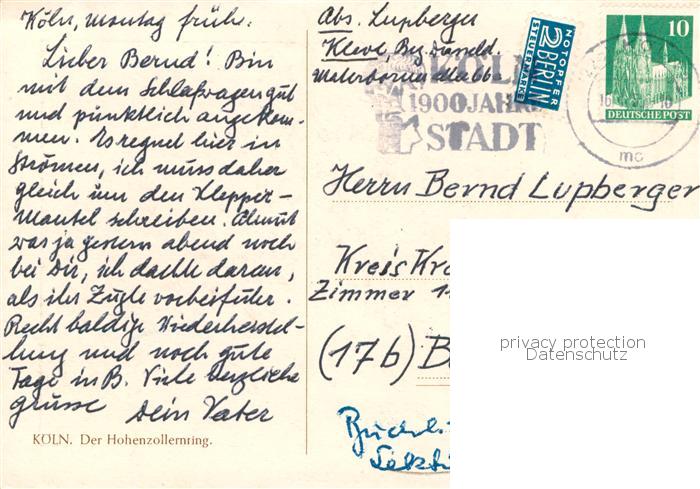 Köln, Montag früh.
Lieber Bernd! Bin
mit dem Schlafwagen gut
und pünktlich angekom-
men. Es regnet hier in
Strömen, ich muss daher
gleich um den Klepper-
Mantel schreiben. Almut
war ja gestern abend noch
bei Dir, ich dachte daran,
als ihr Zügle vorbeifuhr.
Recht baldige Wiederherstel-
lung und noch gute
Tage in B. Viele herzliche
Grüsse Dein Vater
KÖLN. Der Hohenzollernring.
Abs. Lupberger
Kleve, Bez. Düsseld.
Materborner
NOTOPFER
2 BERLIN
STEUERMARKE
10
DEUTSCHE POST
KÖLN
1900 JAHRE
STADT
16
mc
Herrn Bernd Lupberger
Kreis
Zimmer
(17b) B
privacy protection
Datenschutz